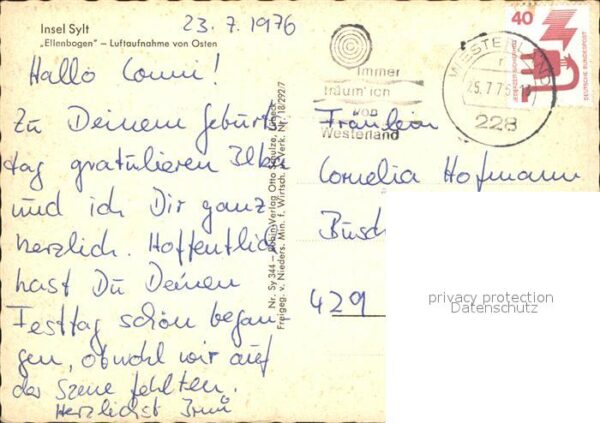 23.7.1976
Insel Sylt
„Ellenbogen" – Luftaufnahme von Osten
Hallo Conni!
Zu Deinem Geburts-
tag gratulieren
und ich Dir ganz
herzlich. Hoffentlich
hast Du Deinen
Festtag schön began-
gen, obwohl wir auf
der Szene fehlten.
Herzlichst
Nr. Sy 344 – Verlag Otto
Freigeg. v. Nieders. Min. f. Wirtsch. Verk. Nr. 18/292/7
immer
träum' ich
von
Westerland
WESTERLAND
25.7.76
228
40
JEDERZEIT SICHERHEIT
DEUTSCHE BUNDESPOST
Fräulein
Cornelia Hofmann
Büsch
429
privacy protection
Datenschutz